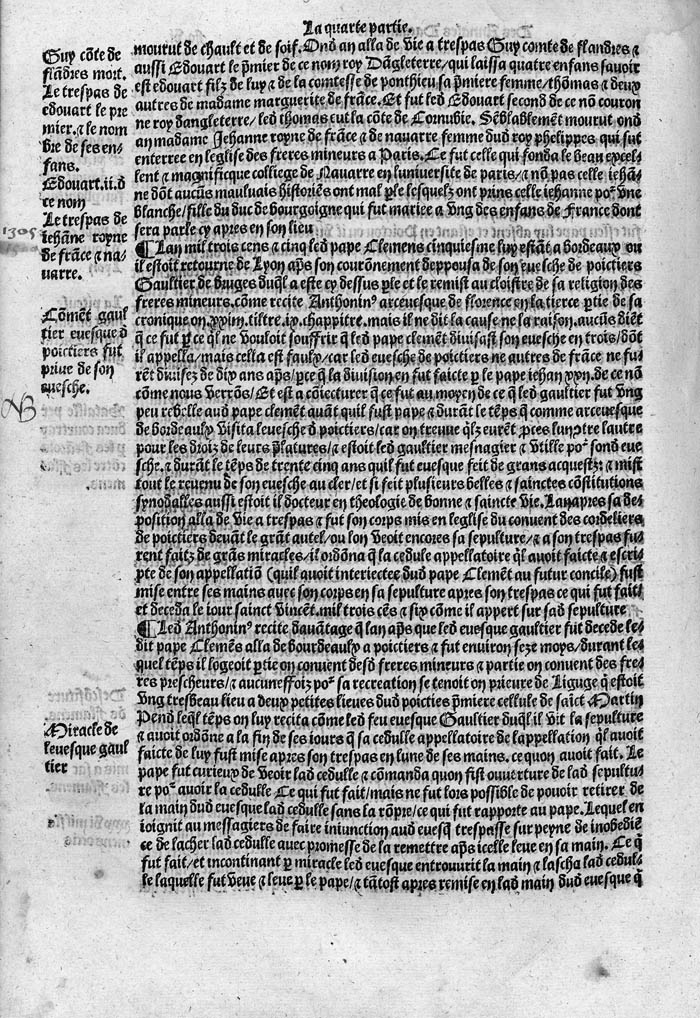 La quarte partie.
Guy cõte de
flãdres mort.
Le trespas de
edouart le pre
mier. ⁊ le nom
bre de ses en⸗
fans.
Edouart.ii.d
ce nom
Le trespas de
iehãne royne
de frãce ⁊ na⸗
uarre.
1305
Cõmẽt gaul
tier euesque d̃
poictiers fut
priue de son
euesche.
NB
Miracle de
leuesque gaul
tier
mourut de chault et de soif. Oud an alla de vie a trespas Guy comte de flandres ⁊
aussi Edouart le p̃mier de ce nom roy Dãgleterre/qui laissa quatre enfans sauoir
est edouart filz de luy ⁊ de la comtesse de ponthieu sa p̃miere femme/thõmas ⁊ deux
autres de madame marguerite de frãce. Et fut led Edouart second de ce nõ couron
ne roy dangleterre/ led thomas eut la cõte de Cornubie. Sẽblablemẽt mourut oud
an madame Jehanne royne de frãce ⁊ de nauarre femme dud roy phelippes qui fut
enterree en leglise des freres mineurs a Paris. Ce fut celle qui fonda le beau excel⸗
lent ⁊ magnificque colliege de Nauarre en luniuersite de paris/⁊ nõ pas celle iehã⸗
ne dõt aucũs mauluais historiẽs ont mal p̃le lesquelz ont prins celle iehanne poᵘ vne
blanche/fille du duc de bourgoigne qui fut mariee a vng des enfans de France dont
sera parle cy apres en son lieu
¶ Lan mil trois cens ⁊ cinq led pape Clemens cinquiesme luy estãt a bordeaux ou
il estoit retourne de Lyon ap̃s son courõnement deppousa de son euesche de poictiers
Gaultier de bruges duq̃l a este cy dessus p̃le et le remist au cloistre de sa religion des
freres mineurs. cõme recite Anthoninꝰ arceuesque de florence en la tierce p̃tie de sa
cronique on .xxim. tiltre.ix. chappitre. mais il ne dit la cause ne la raison. aucũs diẽt
q̃ ce fut p̃ ce q̃l ne vouloit souffrir q̃ led pape clemẽt diuisast son euesche en trois/dõt
il appella/mais cella est faulx/car led euesche de poictiers ne autres de france ne fu⸗
rẽt diuisez de dix ans ap̃s/p̃ce q̃ la diuision en fut faicte p̃ le pape iehan .xxii. de ce nõ
cõme nous verrõs/ Et est a cõiecturer q̃ ce fut au moyen de ce q̃ led gaultier fut vng
peu rebelle aud pape clemẽt quãt quil fust pape ⁊ durãt le tẽps q̃ comme arceuesque
de bordeaulx visita leuesche d̃ poictiers/car on treuue q̃lz eurẽt p̃ces lun p̃tre lautre
pour les droiz de leurs p̃latures/⁊ estoit led gaultier mesnagier ⁊ vtille poᵘ sond eue
sche. ⁊ durãt le tẽps de trente cinq ans quil fut euesque feit de grans acquestz: ⁊ mist
tout le reuenu de son euesche au cler/et si feit plusieurs belles ⁊ sainctes cõstitutions
synodalles aussi estoit il docteur en theologie de bonne ⁊ saincte vie. Lan apres sa de⸗
position alla de vie a trespas ⁊ fut son corps mis en leglise du conuent des cordeliers
de poictiers deuãt le grãt autel/ou lon veoit encores sa sepulture/⁊ a son trespas fu⸗
rent faitz de grãs miracles/il ordõna q̃ la cedule appellatoire q̃l auoit faicte ⁊ escri⸗
pte de son appellatiõ (quil auoit interiectee dud pape Clemẽt au futur concile) fust
mise entre ses mains auec son corps en sa sepulture apres son trespas ce qui fut fait⸗
et deceda le iour sainct vincẽt. mil trois cẽs ⁊ six cõme il appert sur sad sepulture
¶ Led Anthoninꝰ recite dauãtage q̃ lan ap̃s que led euesque gaultier fut decede le⸗
dit pape Clemẽs alla de bourdeaulx a poictiers ⁊ fut enuiron seze moys/durant le⸗
quel tẽps il logeoit p̃tie on conuent desd freres mineurs ⁊ partie on conuent des fre⸗
res prescheurs/⁊ aucuneffoiz poᵘ sa recreation se tenoit on prieure de Liguge q̃ estoit
vng tresbeau lieu a deux petites lieues dud poicties p̃miere cellule de saĩct Martin
Pend leq̃l tẽps on luy recita cõme led feu euesque Gaultier duq̃l il vit la sepulture
⁊ auoit ordõne a la fin de ses iours q̃ sa cedulle appellatoire de lappellation q̃l auoit
faicte de luy fust mise apres son trespas en lune de ses mains. ce quon auoit fait. Le
pape fut curieux de veoir lad cedulle ⁊ cõmanda quon fist ouuerture de lad sepultu⸗
re poᵘ auoir la cedulle Ce qui fut fait/mais ne fut lors possible de pouoir retirer de
la main dud euesque lad cedulle sans la rõpre/ce qui fut rapporte au pape. Lequel en
ioignit au messagiers de faire iniunction aud euesq̃ trespasse sur peyne de inobediẽ
ce de lacher lad cedulle auec promesse de la remettre ap̃s icelle leue en sa main. Ce q̃
fut fait/et incontinant p̃ miracle led euesque entrouurit la main ⁊ lascha lad cedul⸗
le laquelle fut veue ⁊ leue p̃ le pape/⁊ tãtost apres remise en lad main dud euesque q̃